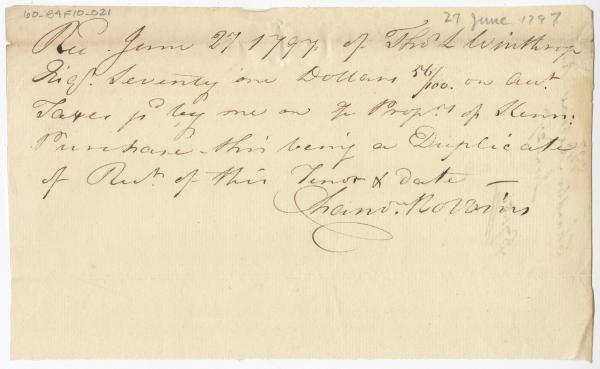 60-BAF10-021
27 June 1797
Rec. June 27 1797. of Thos. L Winthrop
Esqr. Seventy one Dollars 56/100. on acct.
Taxes pd by me on ye Proprs. of Kenn:
Purchase - this being a Duplicate
of Rect. of this Tenor & date
Chandr. Robbins